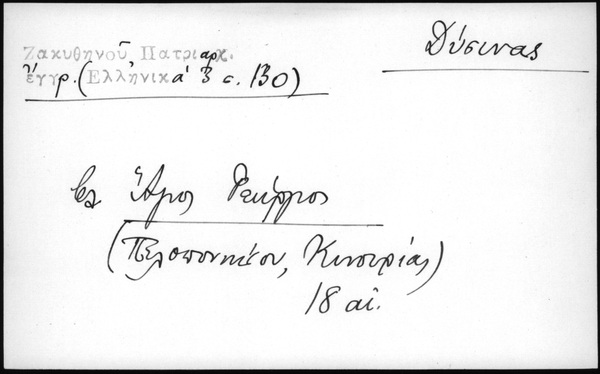 Δύσινας
Ζακυθηνοῦ, Πατριαρχ.
ἔγγρ. (Ἑλληνικά 3 σ. 130)
βλ Ἅγιος Γεώργιος
(Πελοποννήσου, Κυνουρίας)
18 αἰ.